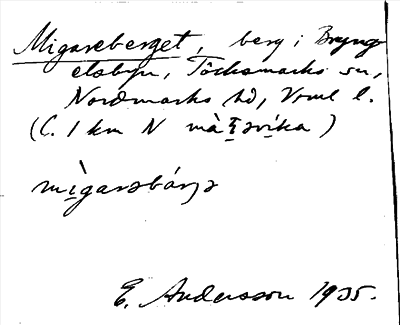 Migareberget, berg i Bryng-
elsbyn, Töcksmarks sn,
Nordmarks hd, Vrml l.
(C. 1 km N
mìgarəbárjə
E. Andersson 1935.